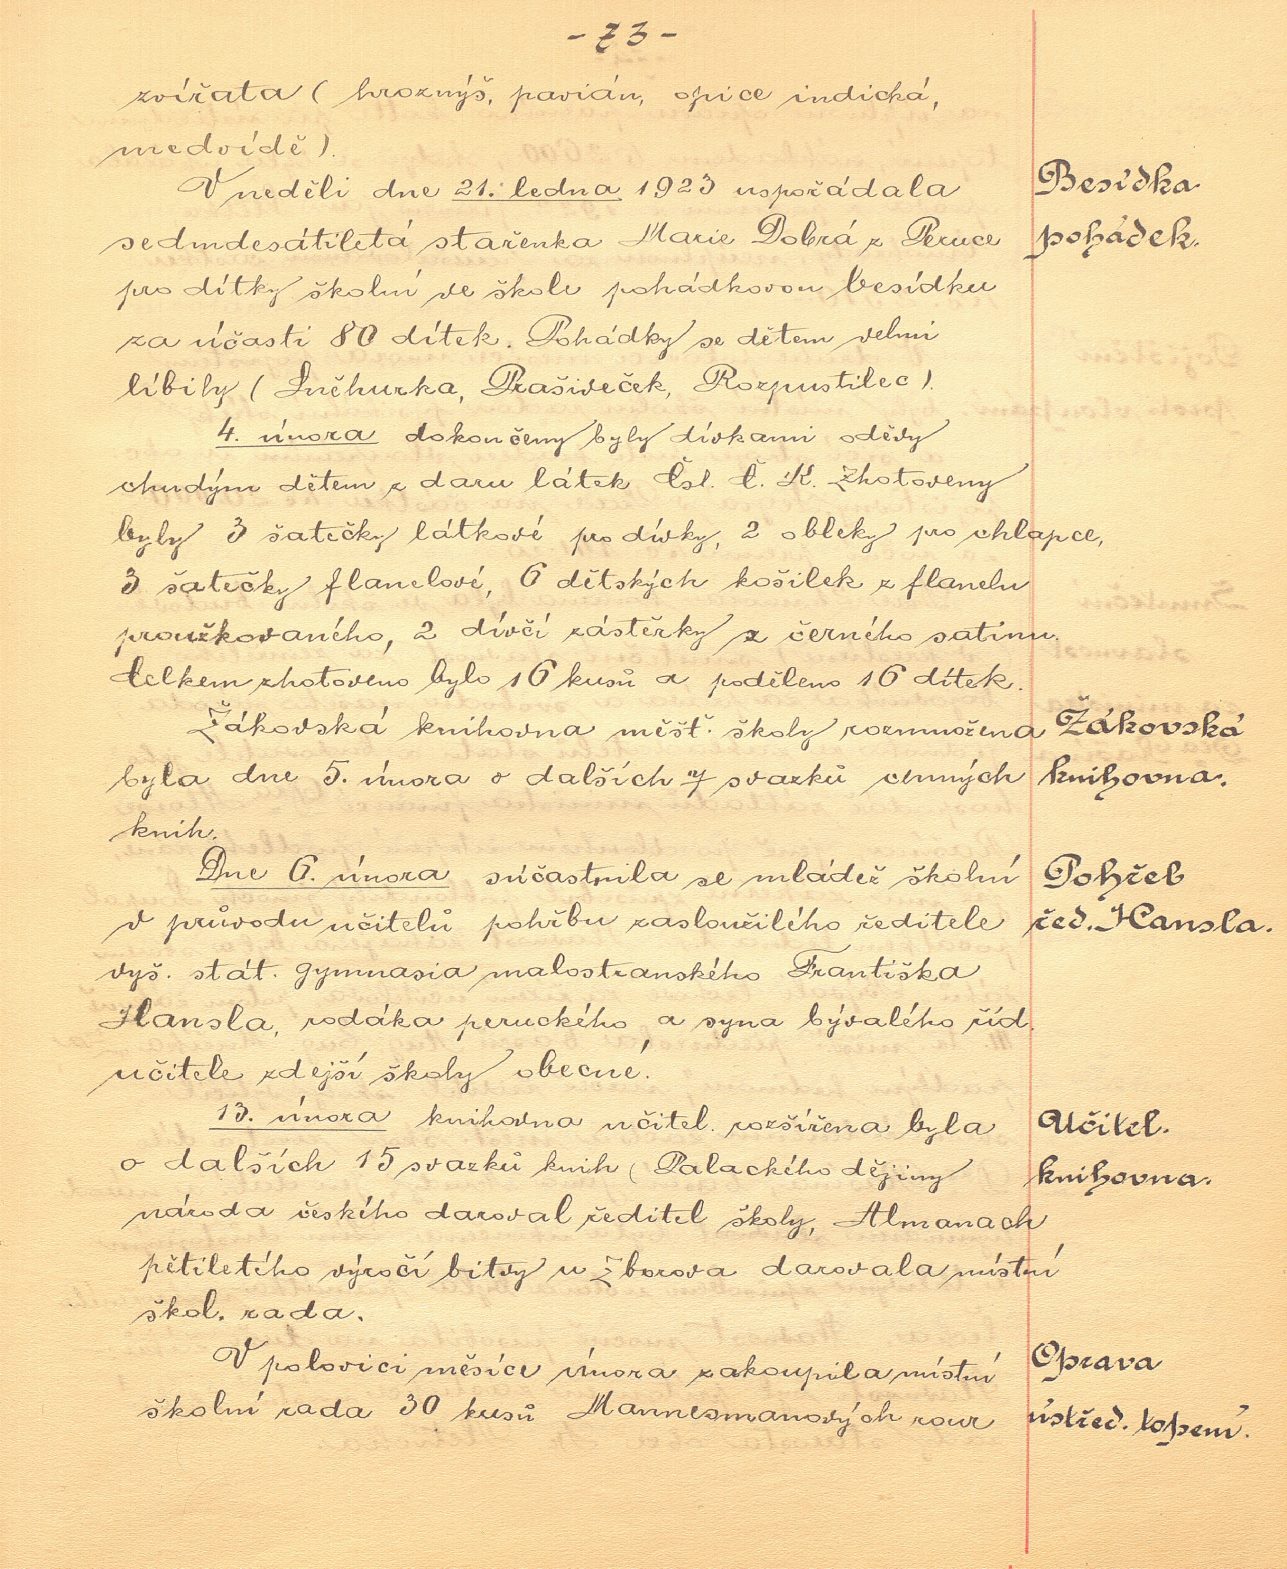 - 73 -
zvířata ( hroznýš, pavián, opice indická,
medvídě ).
V neděli dne 21. ledna 1923 uspořádala
Besídka
sedmdesátiletá stařenka Marie Dobrá z Peruce
pohádek.
pro dítky školní ve škole pohádkovou besídku
za účasti 80 dítek. Pohádky se dětem velmi
líbily ( Sněhurka, Prašiveček, Rozpustilec ).
4. února dokončeny byly dívkami oděvy
chudým dětem z daru látek Čsl. Č. K. Zhotoveny
byly 3 šatečky látkové pro dívky, 2 obleky pro chlapce,
3 šatečky flanelové, 6 dětských košilek z flanelu
proužkovaného, 2 dívčí zástěrky z černého satinu.
Celkem zhotoveno bylo 16 kusů a poděleno 16 dítek.
Žákovská knihovna měšť. školy rozmnožena
Žákovská
byla dne 5. února o dalších 7 svazků cenných
knihovna.
knih.
Dne 6. února súčastnila se mládež školní
Pohřeb
v průvodu učitelů pohřbu zasloužilého ředitele
řed. Hansla.
vyš. stát. gymnasia malostranského Františka
Hansla, rodáka peruckého a syna bývalého říd.
učitele zdejší školy obecné.
13. února knihovna učitel. rozšířena byla
Učitel.
o dalších 15 svazků knih ( Palackého dějiny
knihovna.
národa českého daroval ředitel školy, Almanach
pětiletého výročí bitvy u Zborova darovala místní
škol. rada.
V polovici měsíce února zakoupila místní
Oprava
školní rada 30 kusů Mannesmanových rour
ústřed. topení.